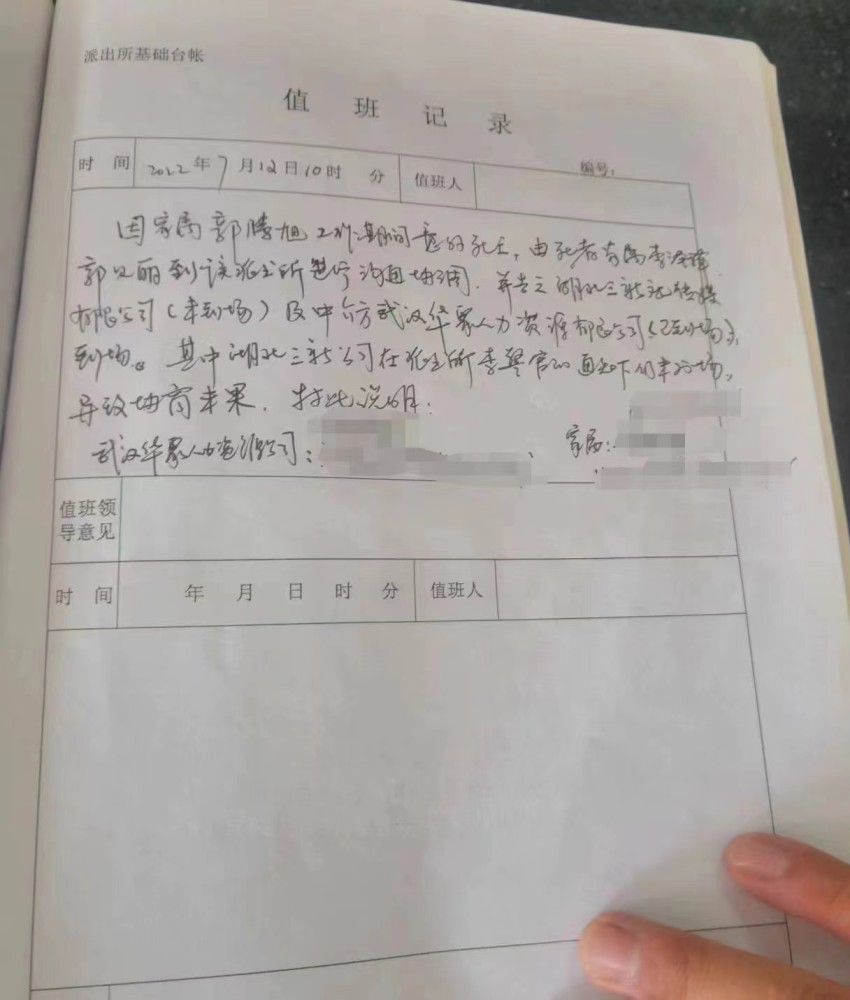 派出所基础台帐
值班记录
编号：
时间 2022年7月12日10时 分 值班人
因家属郭腾旭工作期间意外死亡，由死者家属李
郭 丽到该派出所进行沟通协调，并告之湖北三新
有限公司（未到场）及中介方武汉华聚人力资源有限公司（已到场）
到场。其中湖北三新公司在派出所李警官的通知下仍未到场，
导致协商未果，特此说明：
武汉华聚人力资源公司： 、家属：
值班领导意见
时间 年 月 日 时 分 值班人